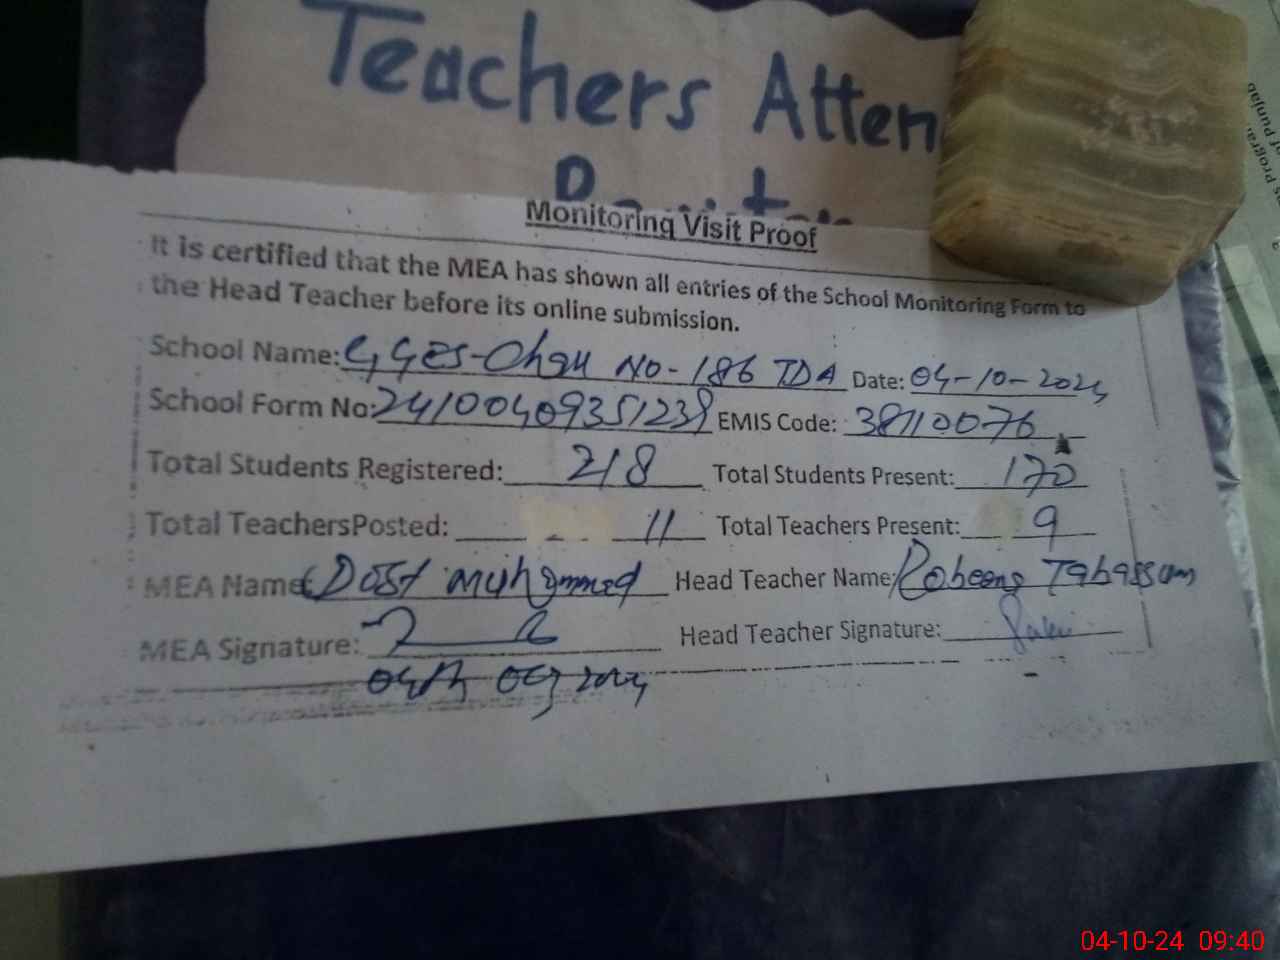 Teachers Atten
Monitoring Visit Proof
It is certified that the MEA has shown all entries of the School Monitoring Form to
the Head Teacher before its online submission.
School Name: GGES-Chak No-186 TDA Date: 04-10-2024
School Form No: 24100409351239 EMIS Code: 38110076
Total Students Registered: 218 Total Students Present: 170
Total TeachersPosted: 11 Total Teachers Present: 9
MEA Name: Dost Muhammad Head Teacher Name: Robeena Tabassum
MEA Signature: Head Teacher Signature:
04th Oct 2024
of Punjab
04-10-24 09:40